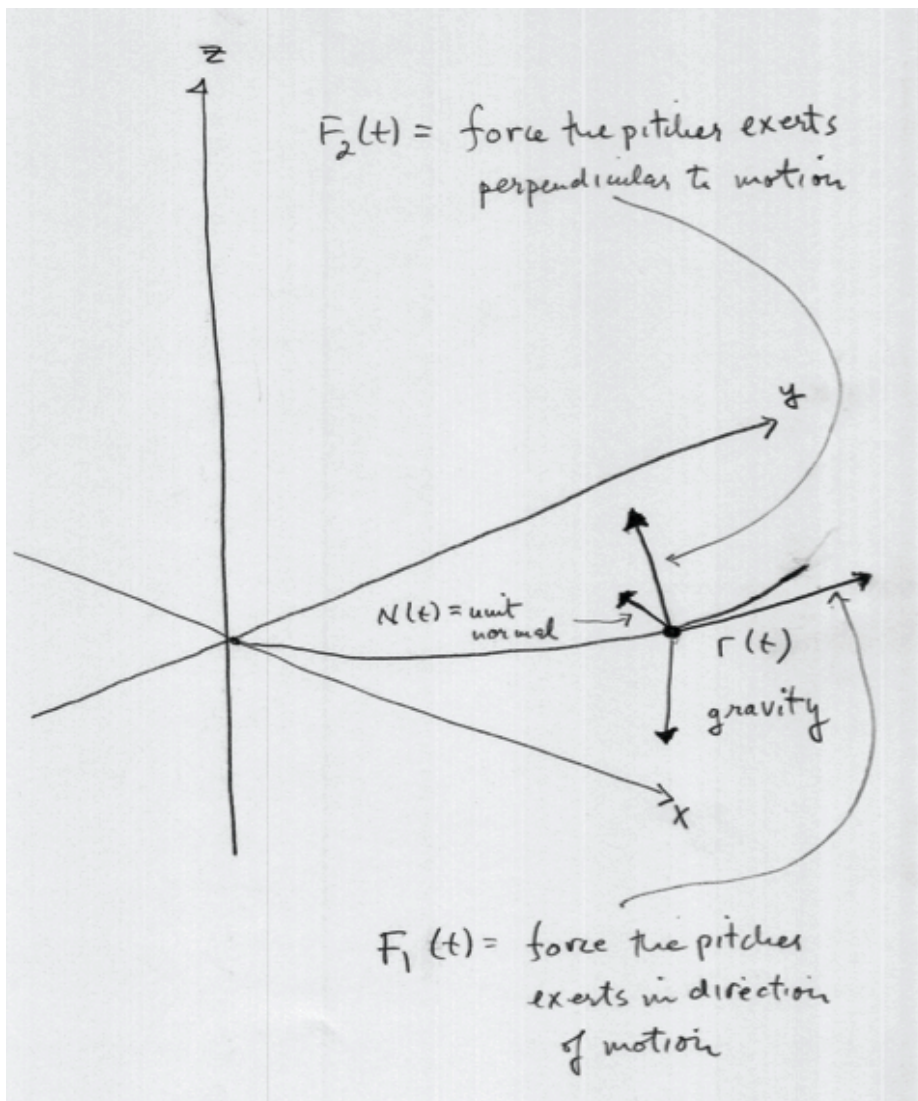 z
F₂(t) = force the pitcher exerts
perpendicular to motion
y
N(t) = unit
normal
r(t)
gravity
x
F₁(t) = force the pitcher
exerts in direction
of motion